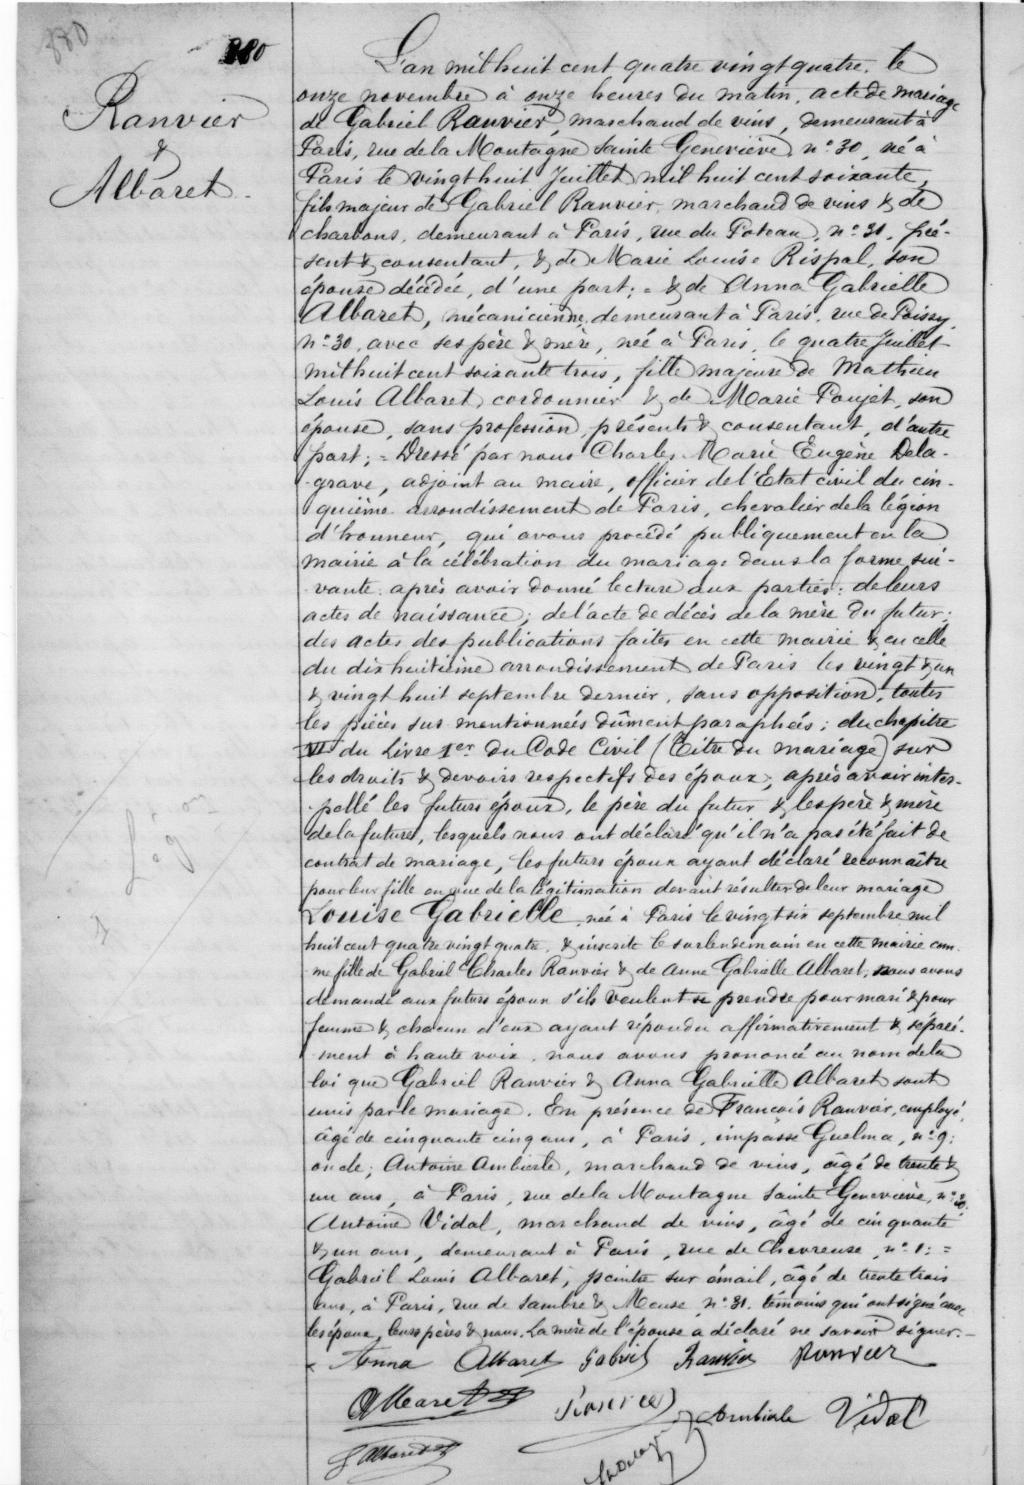 880
880
Ranvier
&
Albaret.
L'an mil huit cent quatre vingt quatre, le
onze novembre à onze heures du matin, acte de mariage
de Gabriel Ranvier, marchand de vins, demeurant à
Paris, rue de la Montagne Sainte Geneviève, n° 30, né à
Paris le vingt huit Juillet mil huit cent soixante,
fils majeur de Gabriel Ranvier, marchand de vins & de
charbons, demeurant à Paris, rue du Poteau, n° 31, pré-
sent & consentant, & de Marie Louise Rispal, son
épouse décédée, d'une part; = & de Anna Gabrielle
Albaret, mécanicienne, demeurant à Paris, rue de Poissy,
n° 30, avec ses père & mère, née à Paris, le quatre Juillet
mil huit cent soixante trois, fille majeure de Mathieu
Louis Albaret, cordonnier & de Marie Poujet, son
épouse, sans profession, présents & consentant, d'autre
part; = Dressé par nous Charles Marie Eugène Dela-
grave, adjoint au maire, officier de l'Etat civil du cin-
quième arrondissement de Paris, chevalier de la légion
d'honneur, qui avons procédé publiquement en la
mairie à la célébration du mariage dans la forme sui-
vante: après avoir donné lecture aux parties: de leurs
actes de naissance; de l'acte de décès de la mère du futur;
des actes des publications faites en cette mairie & en celle
du dix huitième arrondissement de Paris les vingt & un
& vingt huit septembre dernier, sans opposition, toutes
les pièces sus mentionneés dûment paraphées; du chapitre
VI du Livre 1er du Code Civil (Titre du mariage) sur
les droits & devoirs respectifs des époux, après avoir inter-
pellé les futurs époux, le père du futur & les père & mère
de la future, lesquels nous ont déclaré qu'il n'a pas été fait de
contrat de mariage, les futurs époux ayant déclaré reconnaître
pour leur fille en vue de la légitimation devant résulter de leur mariage
Louise Gabrielle, née à Paris le vingt six septembre mil
huit cent quatre vingt quatre, & inscrite le surlendemain en cette mairie com-
me fille de Gabriel Charles Ranvier & de Anne Gabrielle Albaret; nous avons
demandé aux futurs époux s'ils veulent se prendre pour mari & pour
femme & chacun d'eux ayant répondu affirmativement & séparé-
ment à haute voix, nous avons prononcé au nom de la
loi que Gabriel Ranvier & Anna Gabrielle Albaret sont
unis par le mariage. En présence de François Ranvier, employé,
âgé de cinquante cinq ans, à Paris, impasse Guelma, n° 9;
oncle; Antoine Ambierle, marchand de vins, âgé de trente &
un ans, à Paris, rue de la Montagne Sainte Geneviève, n° 30;
Antoine Vidal, marchand de vins, âgé de cinquante
& un ans, demeurant à Paris, rue de Chevreuse, n° 1; =
Gabriel Louis Albaret, peintre sur émail, âgé de trente trois
ans, à Paris, rue de Sambre & Meuse, n° 31, témoins qui ont signé avec
les époux, leurs pères & nous. La mère de l'épouse a déclaré ne savoir signer. =
Anna Albaret Gabriel Ranvier Ranvier
Albaret Ranvier Ambierle Vidal
G Albaret